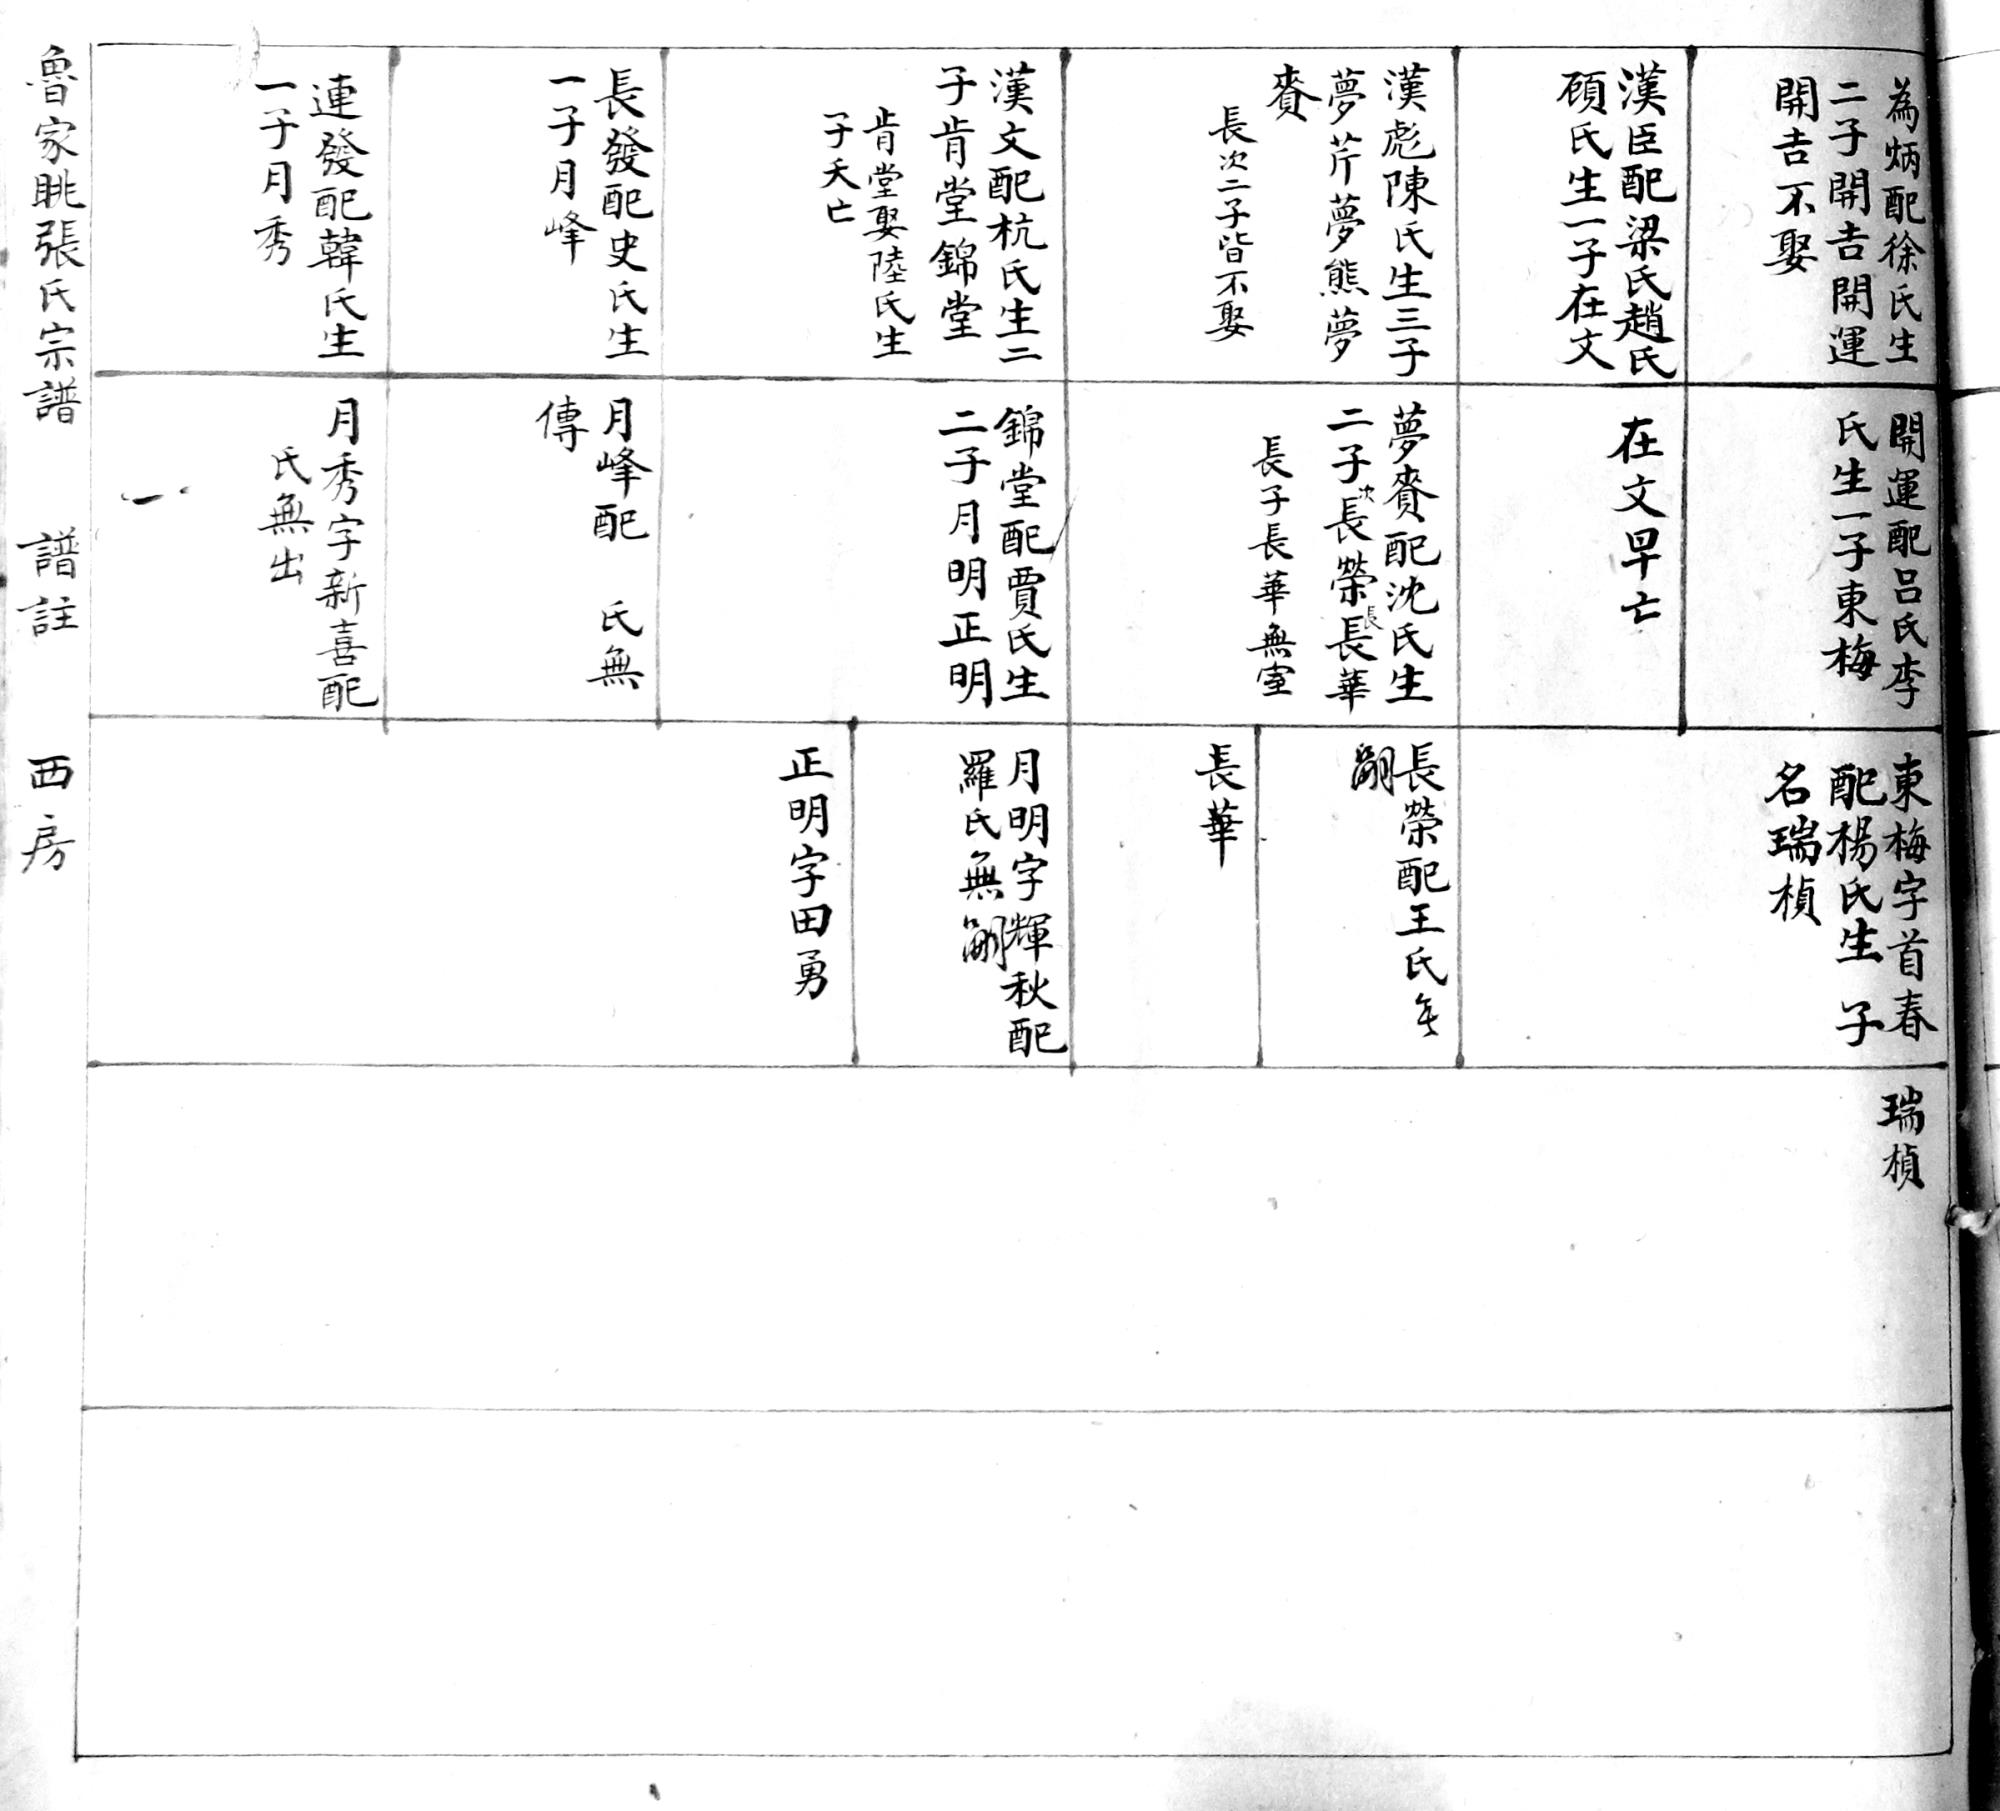 為炳配徐氏生
二子開吉開運
開吉不娶
漢臣配梁氏趙氏
碩氏生一子在文
漢彪陳氏生三子
夢芹夢熊夢
賚
長次二子皆不娶
漢文配杭氏生二
子肯堂錦堂
肯堂娶陸氏生
子夭亡
長發配史氏生
一子月峰
連發配韓氏生
一子月秀
開運配呂氏李
氏生一子東梅
在文早亡
夢賚配沈氏生
二子次長榮長長華
長子長華無室
錦堂配賈氏生
二子月明正明
月峰配 氏無
傳
月秀字新喜配
氏無出
東梅字首春
配楊氏生 子
名瑞楨
長榮配王氏年
嗣
長華
月明字輝秋配
羅氏無嗣
正明字田勇
瑞楨
魯家眺張氏宗譜 譜註 西房